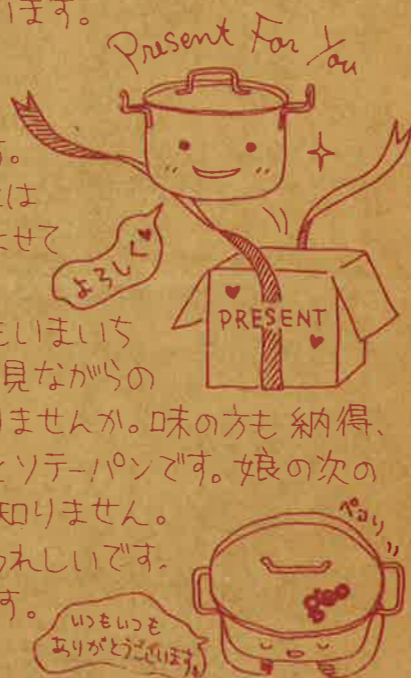 います。
Present For You
す。
は
よせて
よろしく♥
PRESENT
もいまいち
見ながらの
りませんか。味の方も納得、
とソテーパンです。娘の次の
知りません。
うれしいです。
す。
ペコリ
geo
いつもいつも
ありがとうございます。